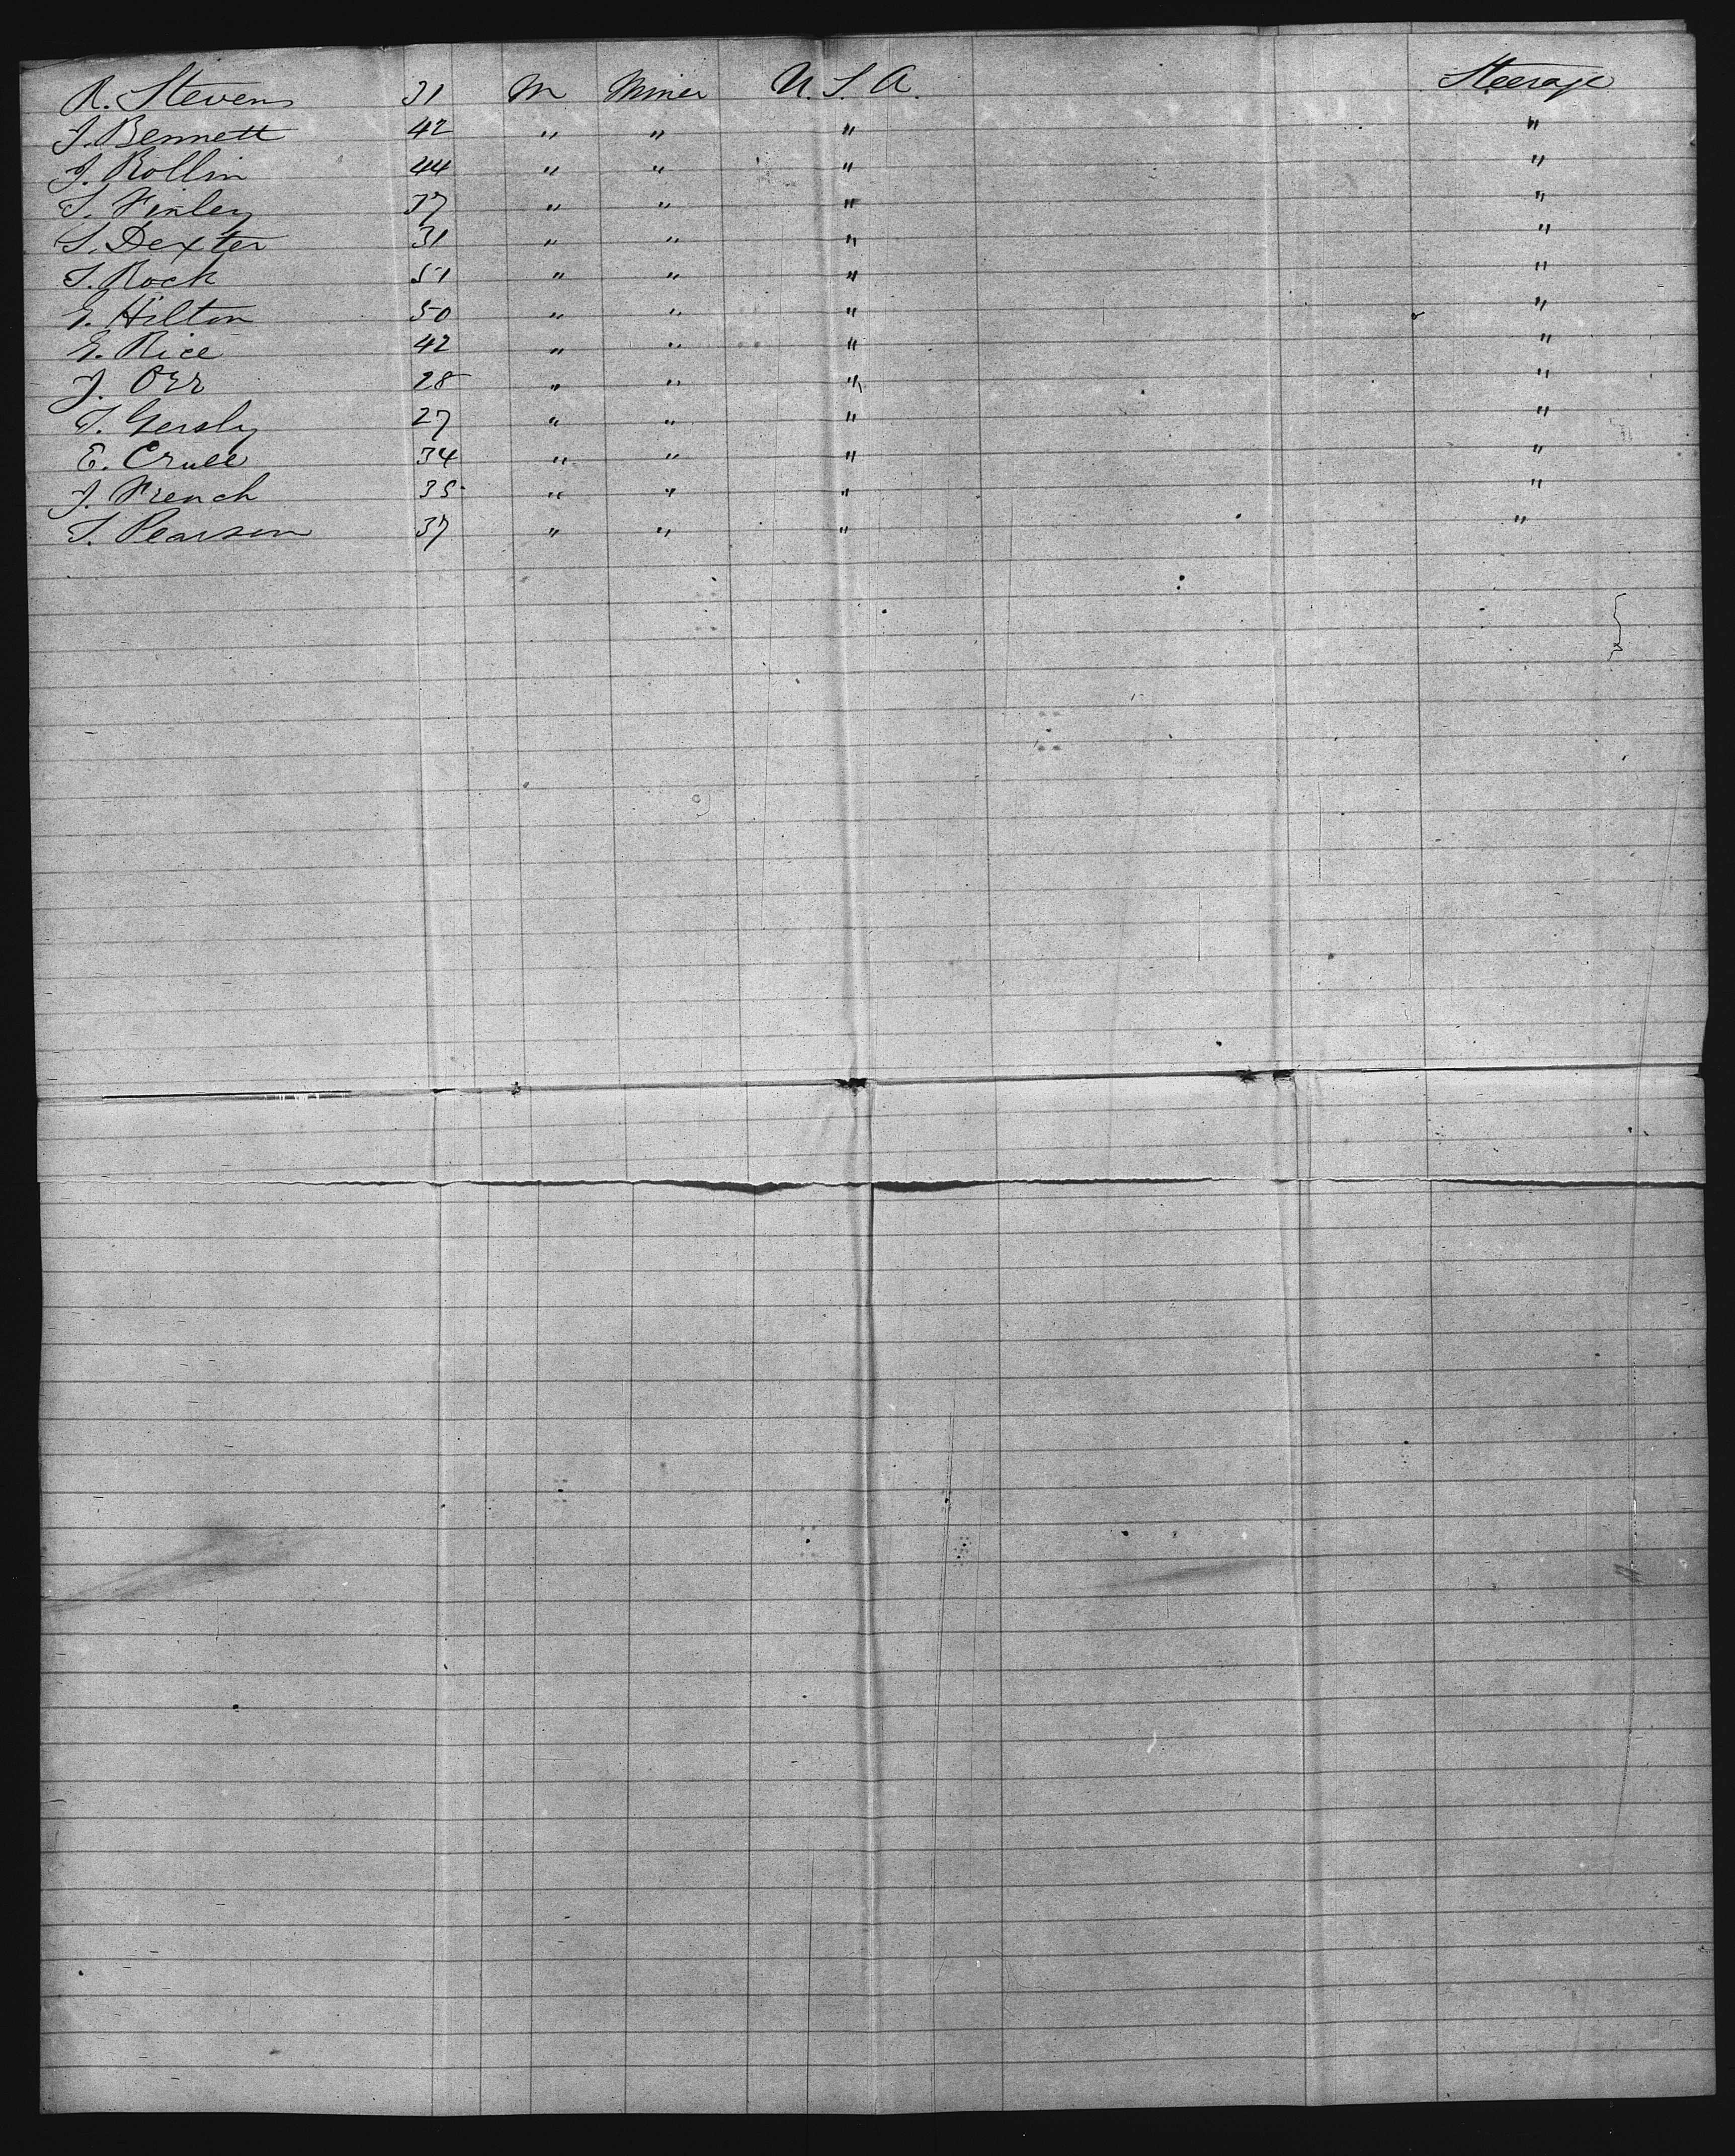 R. Stevens 31 M Miner U.S.A. Steerage
J. Bennett 42 " " " "
J. Rollin 44 " " " "
S. Finley 37 " " " "
S. Dexter 31 " " " "
T. Rock 51 " " " "
G. Hilton 50 " " " "
G. Rice 42 " " " "
J. Orr 28 " " " "
T. Gersly 27 " " " "
E. Cruee 34 " " " "
J. French 35 " " " "
T. Pearson 37 " " " "